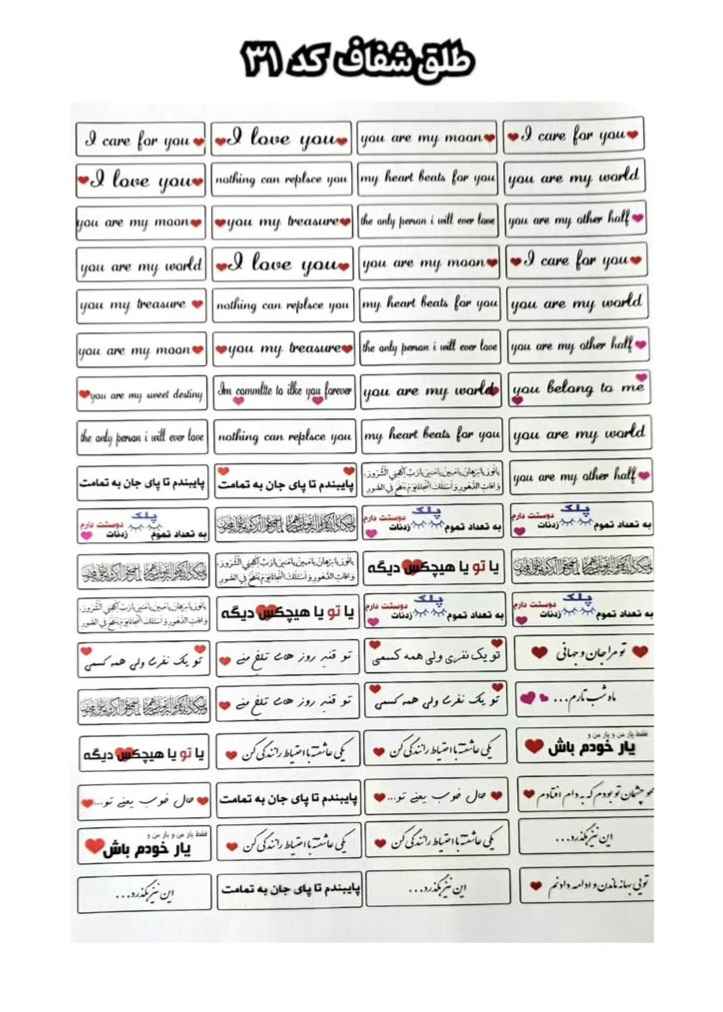 طلق شفاف کد ۳۱
I care for you
I love you
you are my moon
I care for you
I love you
nothing can replsce you
my heart beats for you
you are my world
you are my moon
you my treasure
the only person i will ever love
you are my other half
you are my world
I love you
you are my moon
I care for you
you my treasure
nothing can replsce you
my heart beats for you
you are my world
you are my moon
you my treasure
the only person i will ever love
you are my other half
you are my sweet destiny
Im commlite to ilke you forever
you are my world
you belong to me
the only person i will ever love
nothing can replsce you
my heart beats for you
you are my world
پایبندم تا پای جان به تمامت
پایبندم تا پای جان به تمامت
you are my other half
به تعداد تموم پلک زدنات دوستت دارم
به تعداد تموم پلک زدنات دوستت دارم
به تعداد تموم پلک زدنات دوستت دارم
یا تو یا هیچکس دیگه
یا تو یا هیچکس دیگه
به تعداد تموم پلک زدنات دوستت دارم
به تعداد تموم پلک زدنات دوستت دارم
تو یک نفری ولی همه کسمی
تو قند روز های تلخ منی
تو یک نفری ولی همه کسمی
تو مرا جان و جهانی
تو قند روز های تلخ منی
تو یک نفری ولی همه کسمی
ماه شب تارم...
یا تو یا هیچکس دیگه
یکی عاشقته با احتیاط رانندگی کن
یکی عاشقته با احتیاط رانندگی کن
فقط یار من و یار من و
یار خودم باش
حال خوب یعنی تو...
پایبندم تا پای جان به تمامت
حال خوب یعنی تو...
محو چشمان تو بودم که به دام افتادم
فقط یار من و یار من و
یار خودم باش
یکی عاشقته با احتیاط رانندگی کن
یکی عاشقته با احتیاط رانندگی کن
این نیز بگذرد...
این نیز بگذرد...
پایبندم تا پای جان به تمامت
این نیز بگذرد...
تویی بهانه ماندن و ادامه دادنم